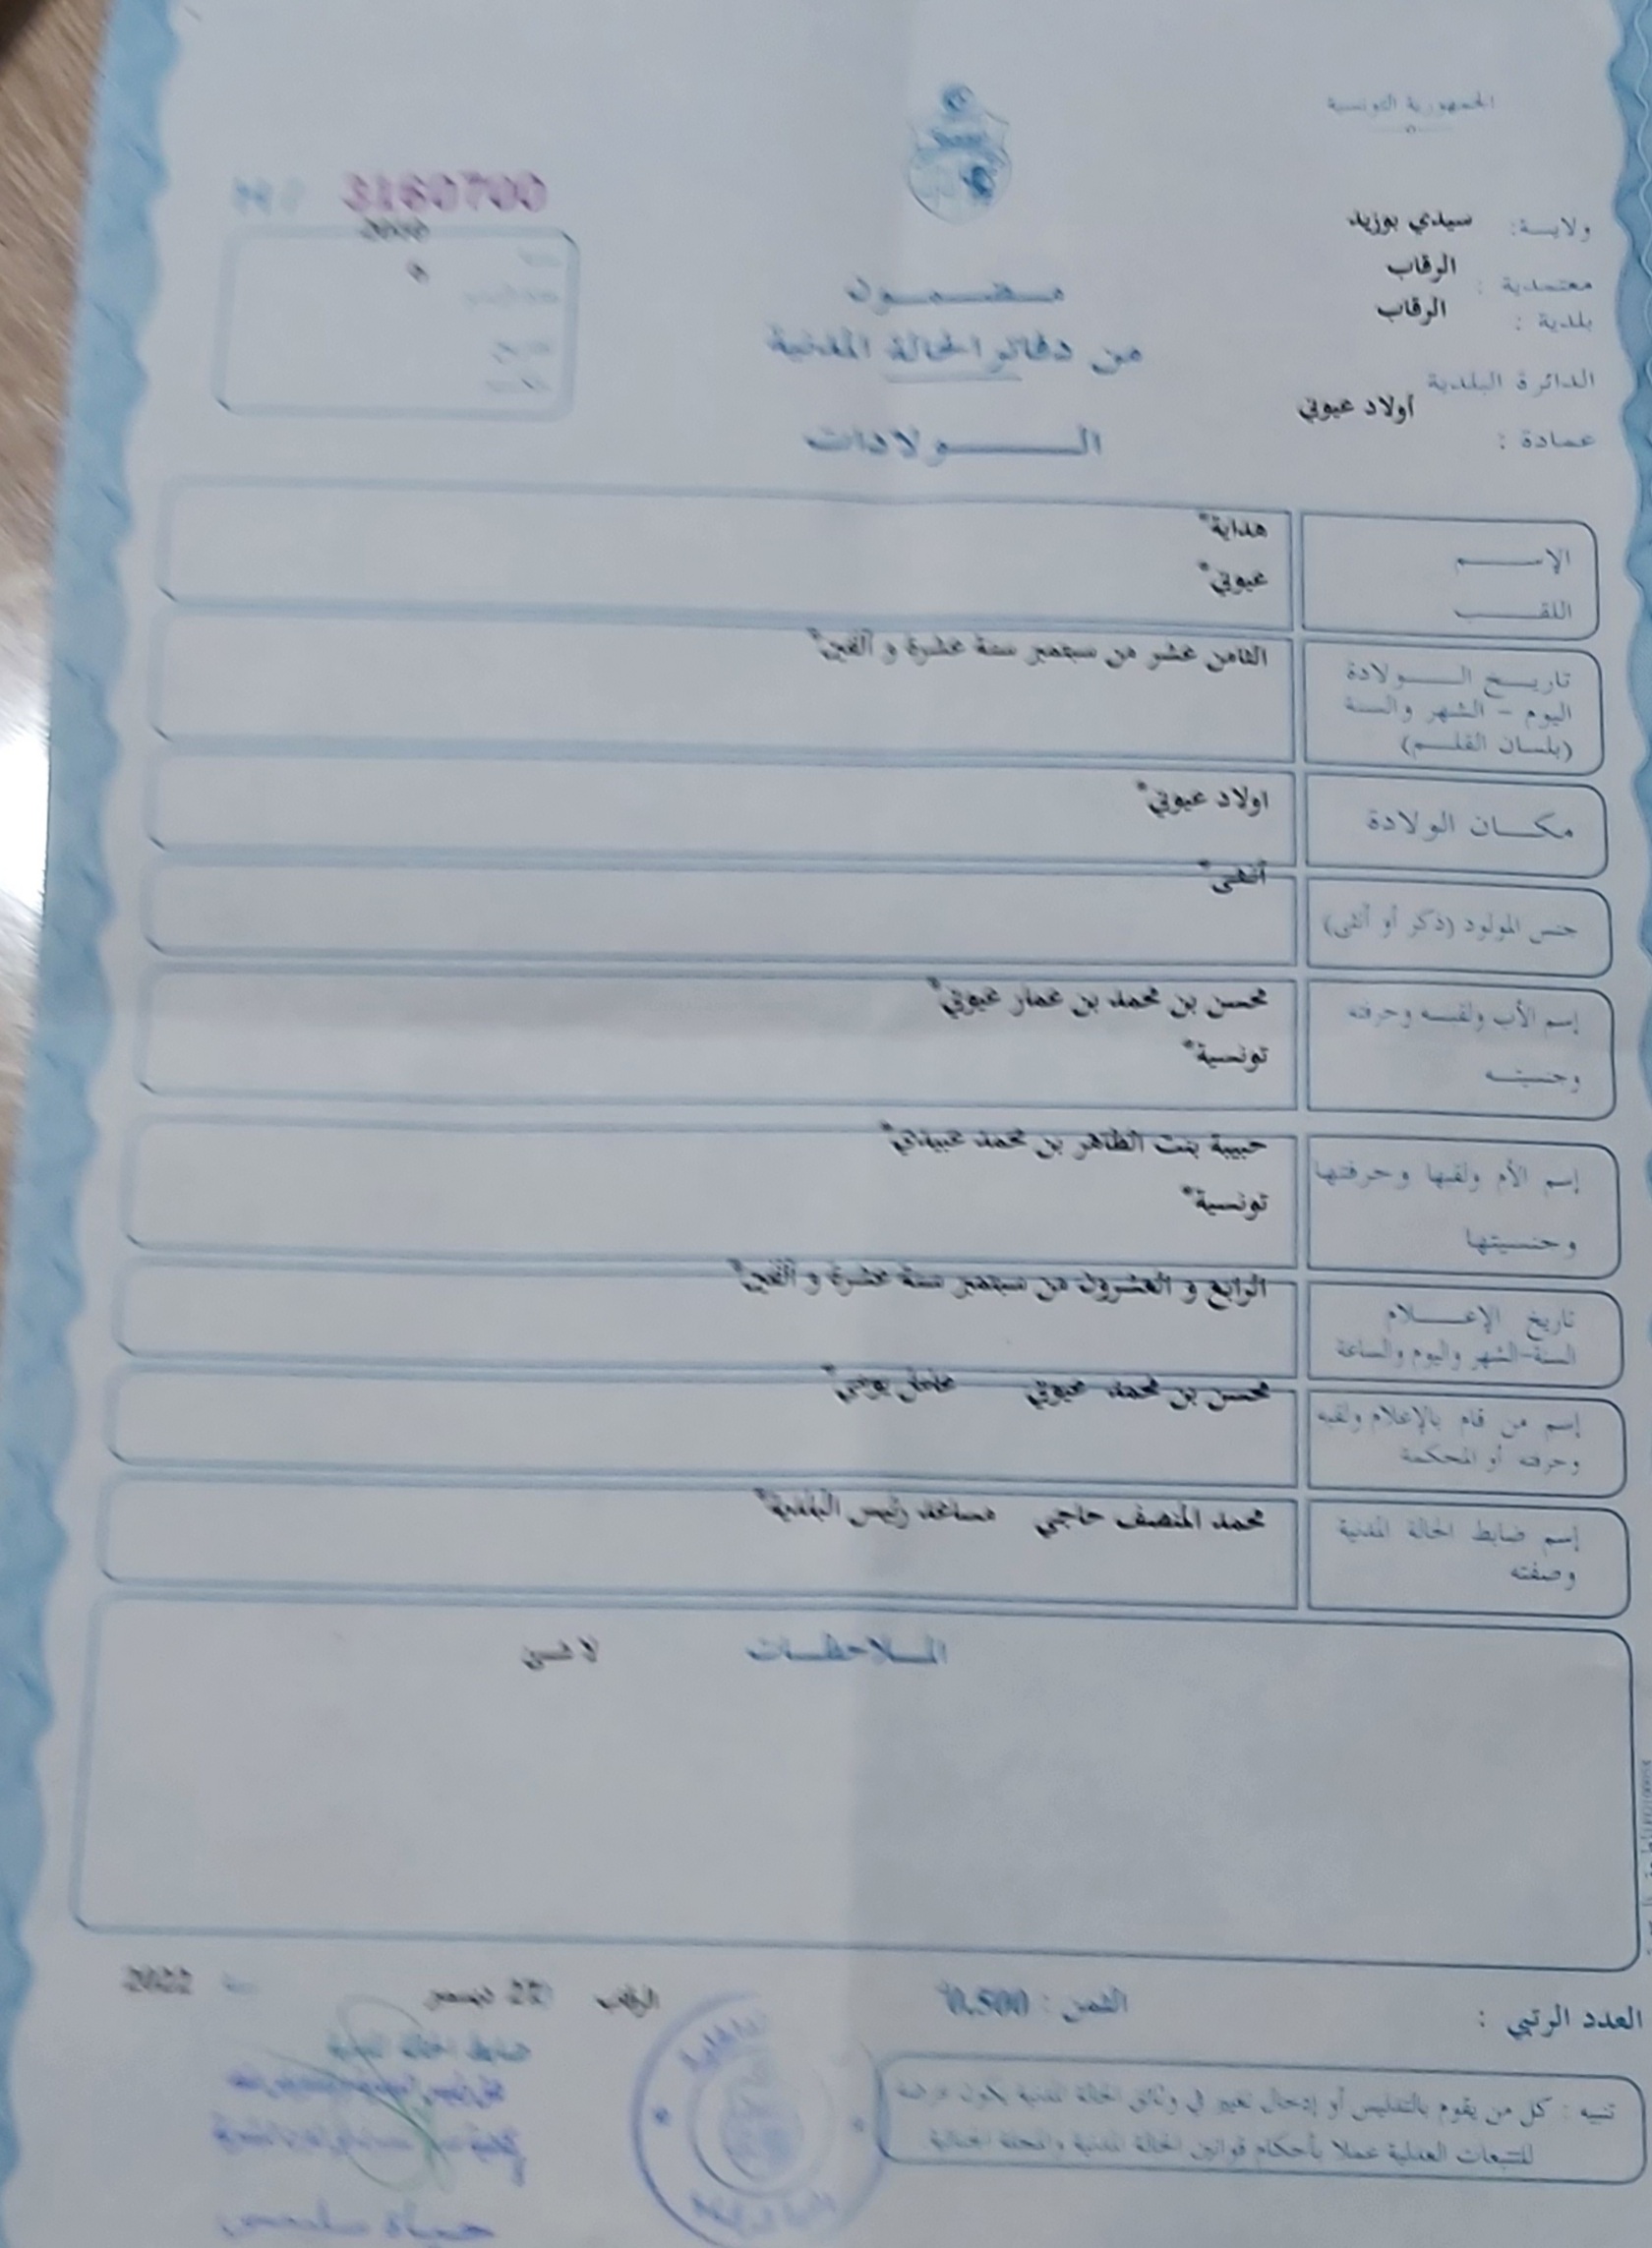 الجمهورية التونسية
ولايـة: سيدي بوزيد
معتمدية : الرقاب
بلدية : الرقاب
الدائرة البلدية
عمادة : اولاد عيوني
3160700
مـضـمـون
من دفاتر الحالة المدنية
الـولادات
الإسـم
هداية*
اللقـب
عيوني*
تاريـخ الـولادة
اليوم - الشهر والسنة
(بلسان القلـم)
الثامن عشر من سبتمبر سنة عشرة و ألفين*
مكـان الولادة
اولاد عيوني*
جنس المولود (ذكر أو أنثى)
أنثى*
إسم الأب ولقبـه وحرفته
محسن بن محمد بن عمار عيوني*
وجنسيتـه
تونسية*
إسم الأم ولقبها وحرفتها
حبيبة بنت الطاهر بن محمد عبيدي*
وجنسيتها
تونسية*
تاريخ الإعـلام
السنة-الشهر واليوم والساعة
الرابع و العشرون من سبتمبر سنة عشرة و ألفين*
إسم من قام بالإعلام ولقبه
وحرفته أو المحكمة
محسن بن محمد عيوني عامل يومي*
إسم ضابط الحالة المدنية
وصفته
محمد المنصف حاجي مساعد رئيس البلدية*
المـلاحظـات
لا شئ
العدد الرتبي :
الثمن : 0,500
الرقاب 22 ديسمبر 2022
ضابط الحالة المدنية
تنبيه : كل من يقوم بالتدليس أو إدخال تغيير في وثائق الحالة المدنية يكون عرضة
للتتبعات العدلية عملا بأحكام قوانين الحالة المدنية والمجلة الجنائية